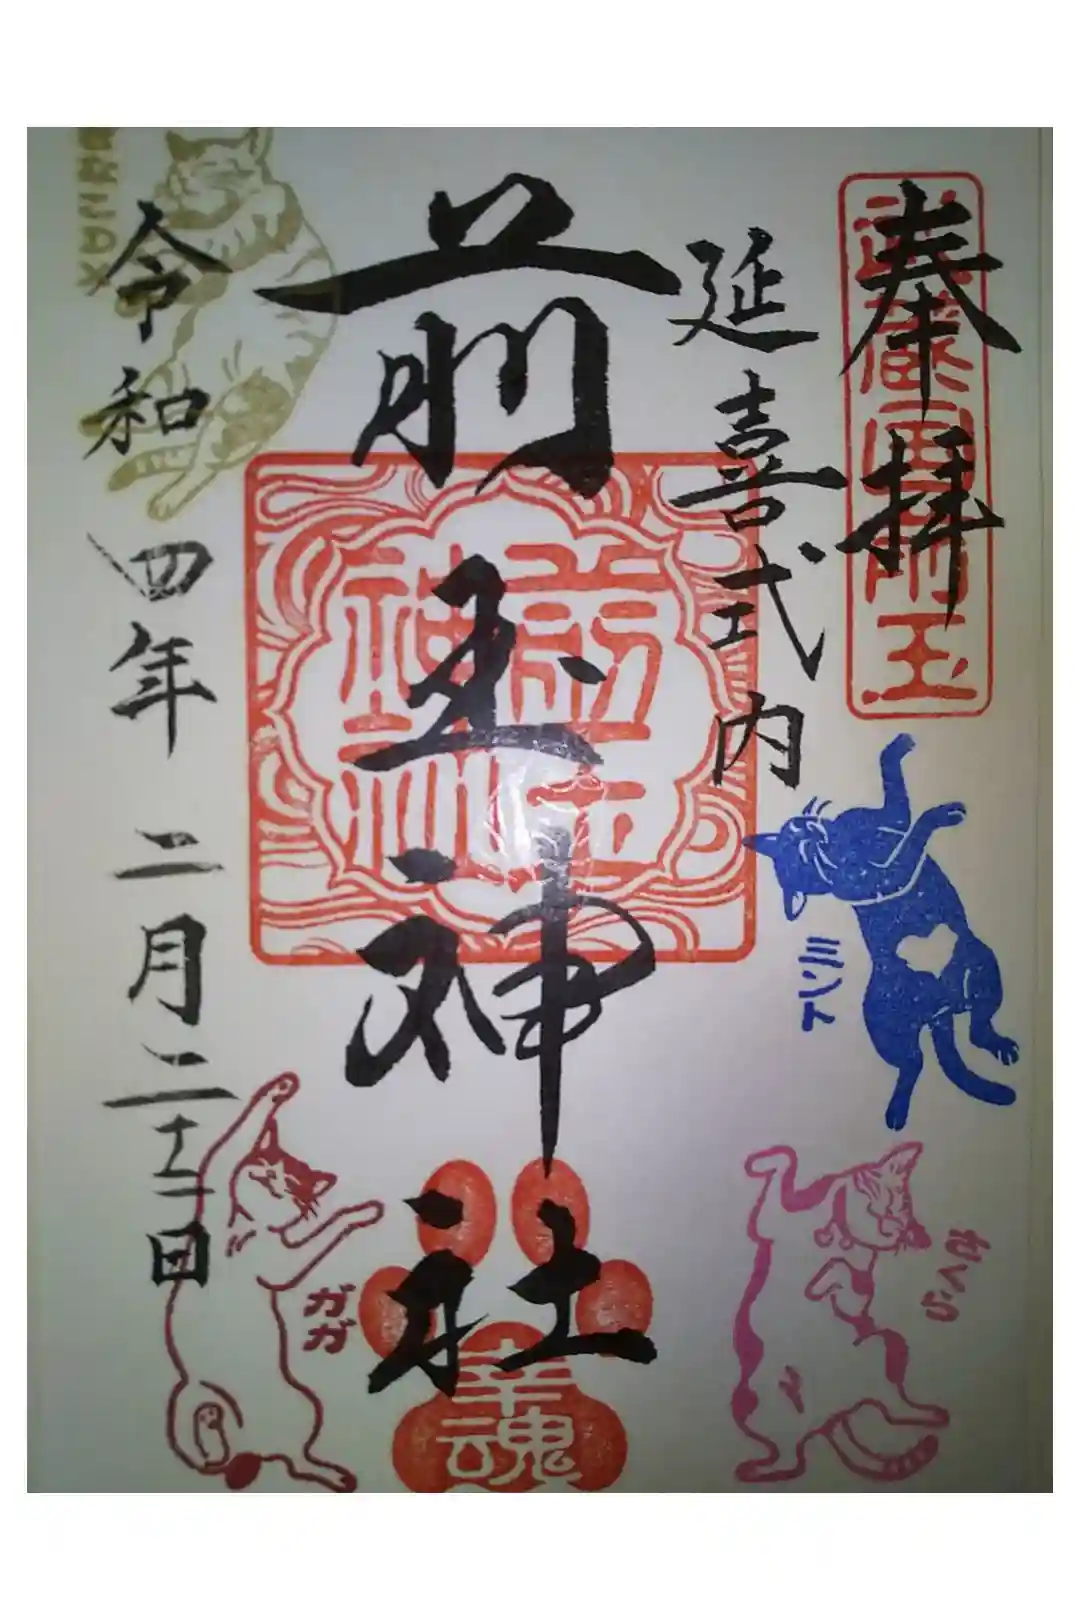 奉拝
武蔵国前玉
延喜式内
前玉神社
前玉神社
令和四年二月二十二日
ミント
さくら
ガガ
幸魂